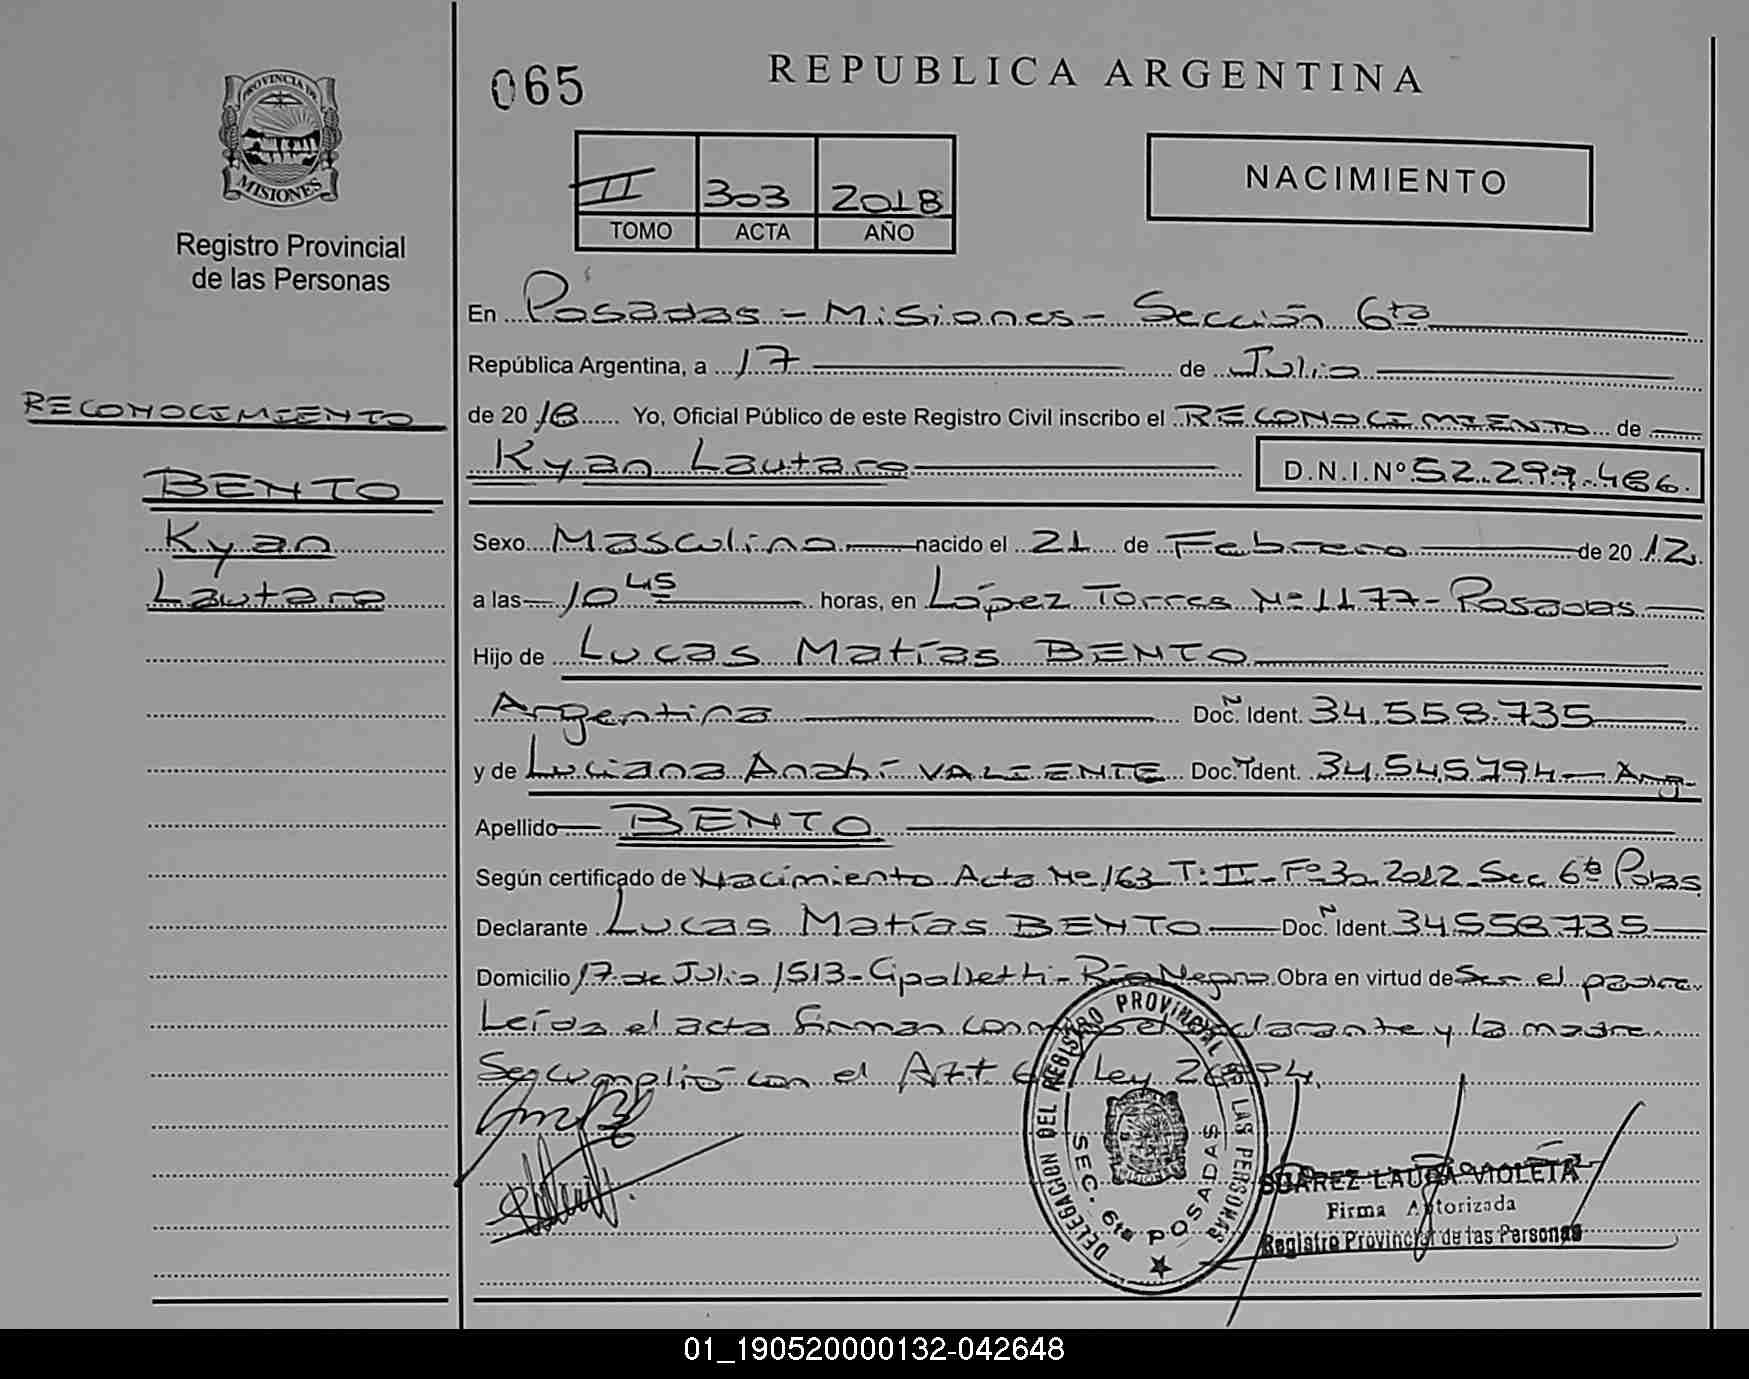 PROVINCIA DE
MISIONES
Registro Provincial
de las Personas
RECONOCIMIENTO
BENTO
Kyan
Lautaro
065
REPUBLICA ARGENTINA
II 303 2018
TOMO ACTA AÑO
NACIMIENTO
En Posadas - Misiones - Sección 6ta
República Argentina, a 17 de Julio
de 2018 Yo, Oficial Público de este Registro Civil inscribo el RECONOCIMIENTO de
Kyan Lautaro D.N.I.Nº 52.297.466.
Sexo Masculino nacido el 21 de Febrero de 2012.
a las 10 45 horas, en López Torres Nº 1177 - Posadas
Hijo de Lucas Matías BENTO
Argentina Doc. Ident. 34.558.735
y de Luciana Anahí VALIENTE Doc. Ident. 34.545.794 - Arg.
Apellido BENTO
Según certificado de Nacimiento Acta Nº 163 T: II - Fº 30 2012 - Sec 6ta Pdas
Declarante Lucas Matías BENTO Doc. Ident. 34.558.735
Domicilio 17 de Julio 1513 - Cipolletti - Río Negro Obra en virtud de Ser el padre.
Leída el acta firman el declarante y la madre.
Se cumplió con el Art. Ley
DELEGACION DEL REGISTRO PROVINCIAL DE LAS PERSONAS
SEC. 6ta POSADAS
SUAREZ LAURA VIOLETA
Firma Autorizada
Registro Provincial de las Personas
01_190520000132-042648